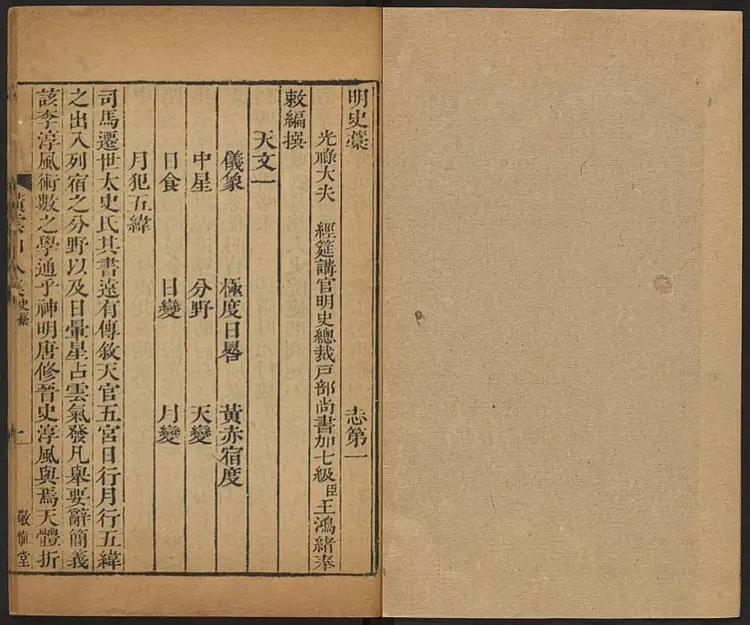 明史藁 志第一
光祿大夫 經筵講官明史總裁戸部尚書加七級臣王鴻緒奉
敕編撰
天文一
儀象 極度日晷 黃赤宿度
中星 分野 天變
日食 日變 月變
月犯五緯
司馬遷世太史氏其書遠有傳敘天官五宮日行月行五緯
之出入列宿之分野以及日暈星占雲氣發凡舉要辭簡義
該李淳風術數之學通乎神明唐修晉史淳風與焉天體折
史藁
一
敬愼堂